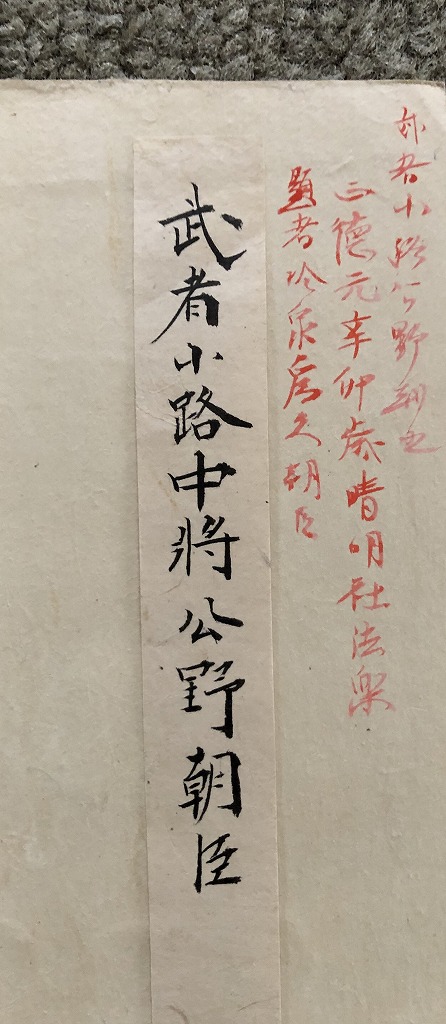 武者小路公野朝臣
正徳元辛卯歳晴明社法楽
題者冷泉為久朝臣
武者小路中將公野朝臣